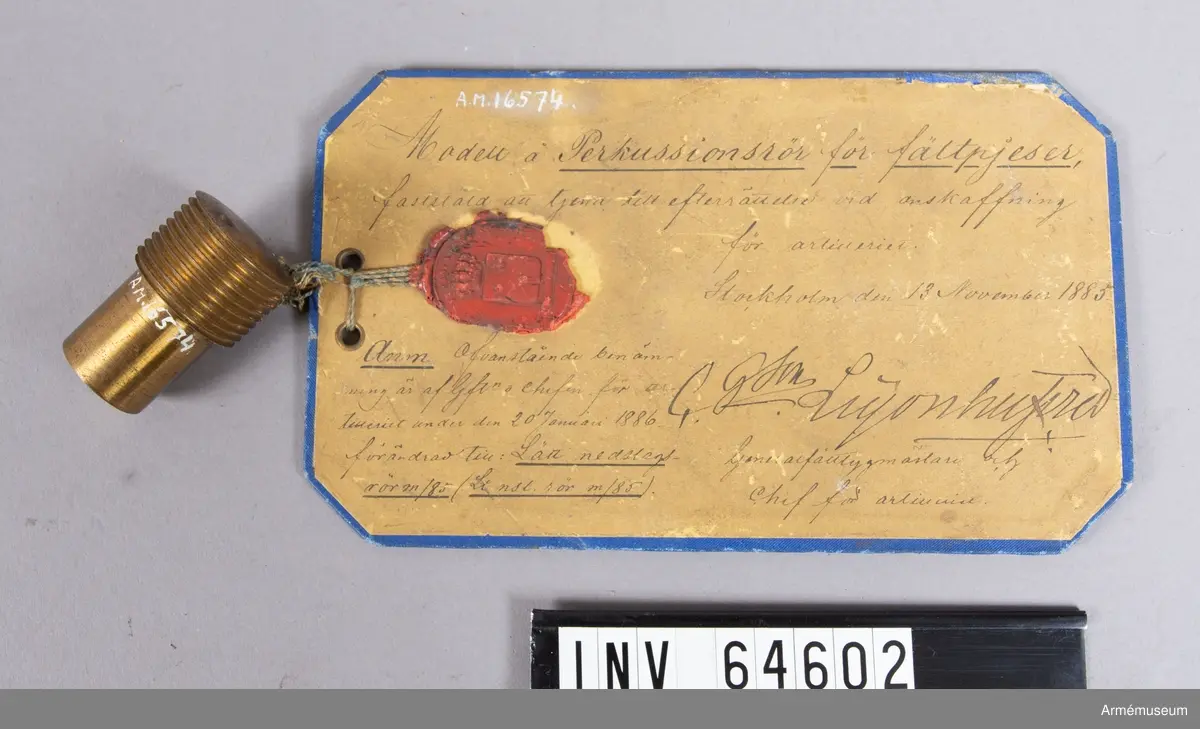 A.M.16574.
Modell å Perkussionsrör för fältpjeser,
fastställd att tjena till efterrättelse vid anskaffning
för artilleriet.
Stockholm den 13 November 1885
A.M.16574
Anm Ofvanstående benäm-
ning är af Chefen för ar-
tilleriet under den 20 Januari 1886
förändrad till: Lätt nedslag-
rör m/85 (Lt nsl. rör m/85).
Leijonhufvud
Generalfälttygmästare och
Chef för artilleriet.
INV 64602
Armémuseum